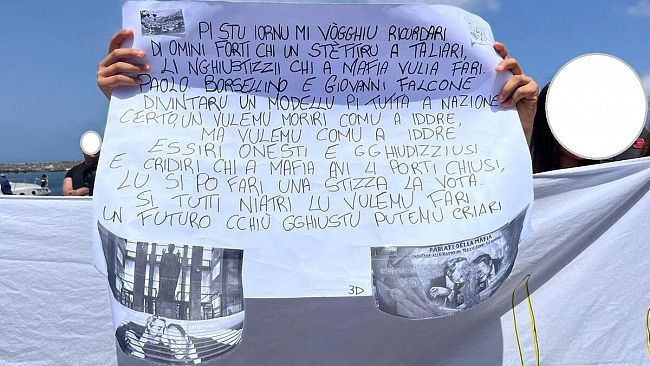 PI STU IORNU MI VÒGGHIU RICURDARI
DI OMINI FORTI CHI UN STÈTTIRU A TALIARI,
LI NGHIUSTIZZII CHI A MAFIA VULIA FARI.
PAOLO BORSELLINO E GIOVANNI FALCONE
DIVINTARU UN MODELLU PI TUTTA A NAZIONE
CERTO, UN VULEMU MORIRI COMU A IDDRE,
MA VULEMU COMU A IDDRE
ESSIRI ONESTI E GGHIUDIZZIUSI
E CRIDIRI CHI A MAFIA AVI LI PORTI CHIUSI,
LU SI PO FARI UNA STIZZA LA VOTA.
SI TUTTI NIATRI LU VULEMU FARI
UN FUTURO CCHIÙ GGHIUSTU PUTEMU CRIARI
3D
PARLATE DELLA MAFIA